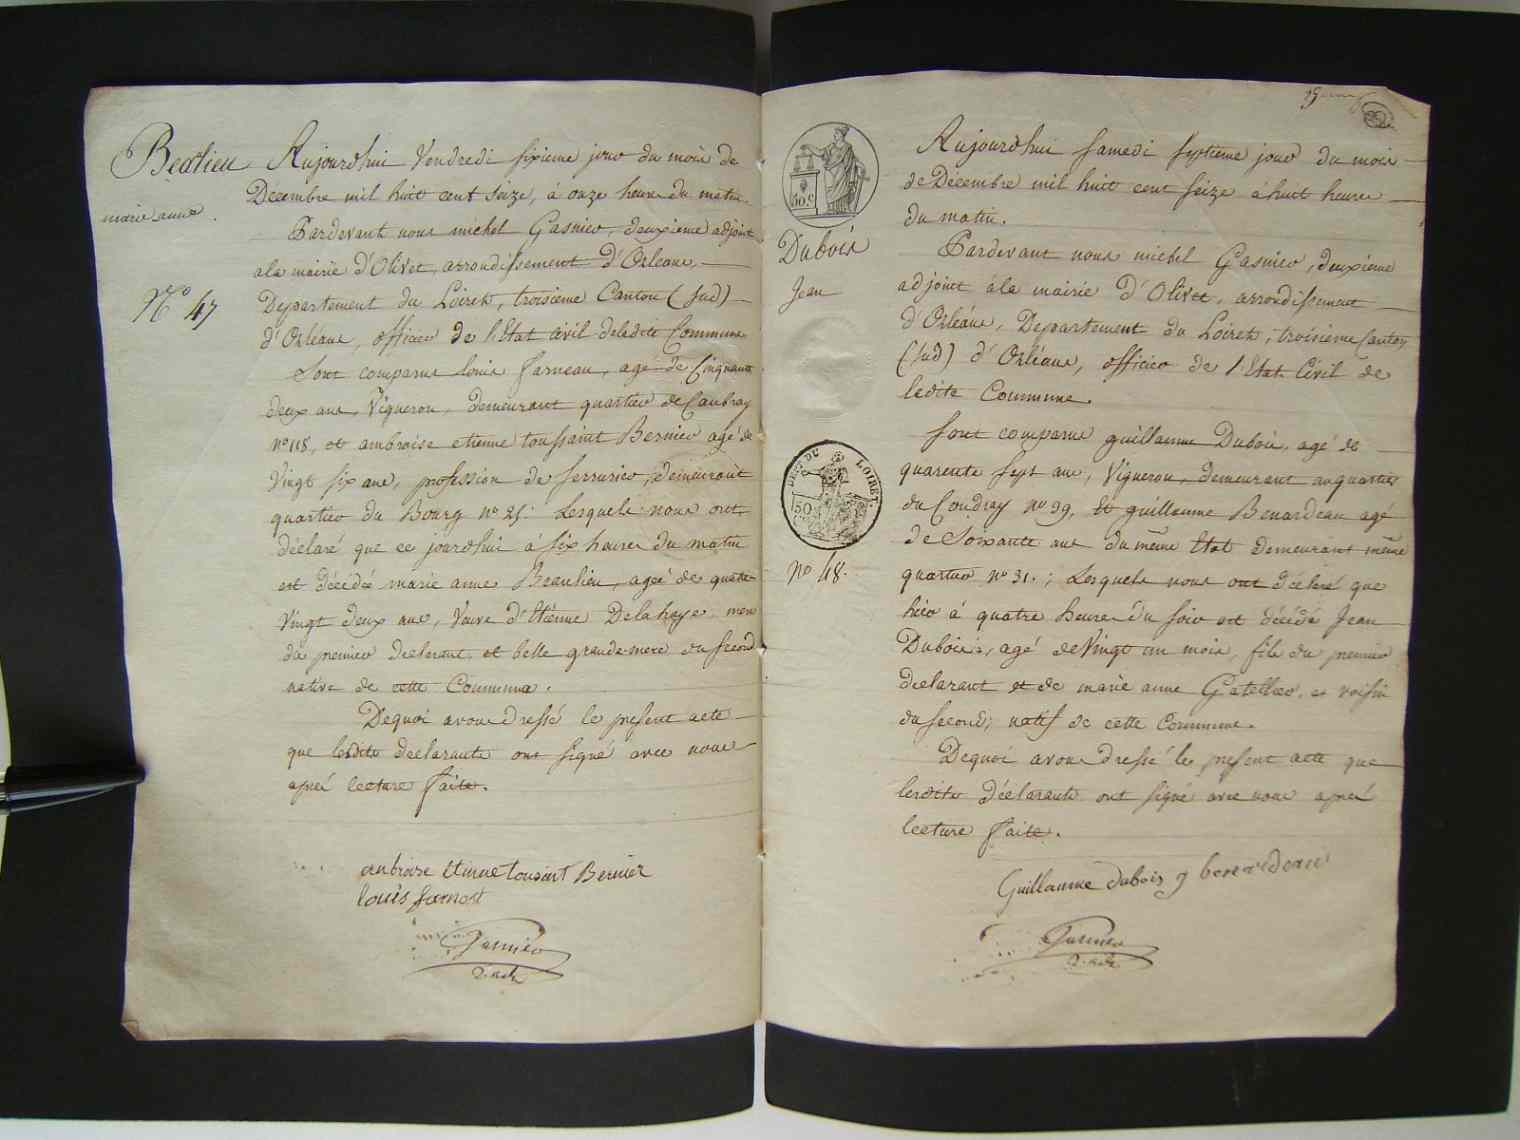 Beaulieu
marie anne
N° 47
Aujourdhui Vendredi sixieme jour du mois de
Decembre mil huit cent seize, à onze heure du matin.
Pardevant nous michel Gasnier, deuxieme adjoint
ala mairie d'Olivet, arrondissement d'Orleans,
Departement du Loiret, troisieme Canton (sud)
d'Orléans, officier de l'Etat Civil deladite Commune
Sont comparus Louis farneau, agé de Cinquante
deux ans, Vigneron, demeurant quartier de
n° 118, et ambroise etienne toussaint Bernier agé de
Vingt six ans, profession de serrurier, demeurant
quartier du Bourg n° 25. Lesquels nous ont
déclaré que ce jourdhui à six heures du matin
est décédée marie anne Beaulieu, ageé de quatre
Vingt deux ans, Veuve d'Etienne Delahaye, mere
du premier declarant et belle grande-mere du second
native de cette Commune.
Dequoi avons dressé le present acte
que lesdits declarants ont signé avec nous
après lecture faite.
ambroise Etiene tousaint Bernier
Louis
Gasnier
Dubois
Jean
50 c
DEPT DU LOIRET.
50
n° 48.
Aujourdhui Samedi septieme jour du mois
de Décembre mil huit cent seize à huit heures
du matin.
Pardevant nous michel Gasnier, deuxieme
adjoint à la mairie d'Olivet, arrondissement
d'Orléans, Departement du Loiret, troisieme Canton
(sud) d'Orléans, officier de l'Etat Civil de
ladite Commune.
Sont comparus guillaume Dubois, agé de
quarente sept ans, Vigneron, demeurant au quartier
du Coudray n° 39, et guillaume Benardeau agé
de Soixante ans du même Etat demeurant même
quartier n° 31.; Lesquels nous ont déclaré que
hier à quatre heures du soir est décédé Jean
Dubois, agé de Vingt un mois, fils du premier
declarant et de marie anne Gatellier, et voisin
du second; natif de cette Commune.
Dequoi avons dressé le present acte que
lesdits déclarants ont signé avec nous après
lecture faite.
Guillaume dubois g
Gasnier